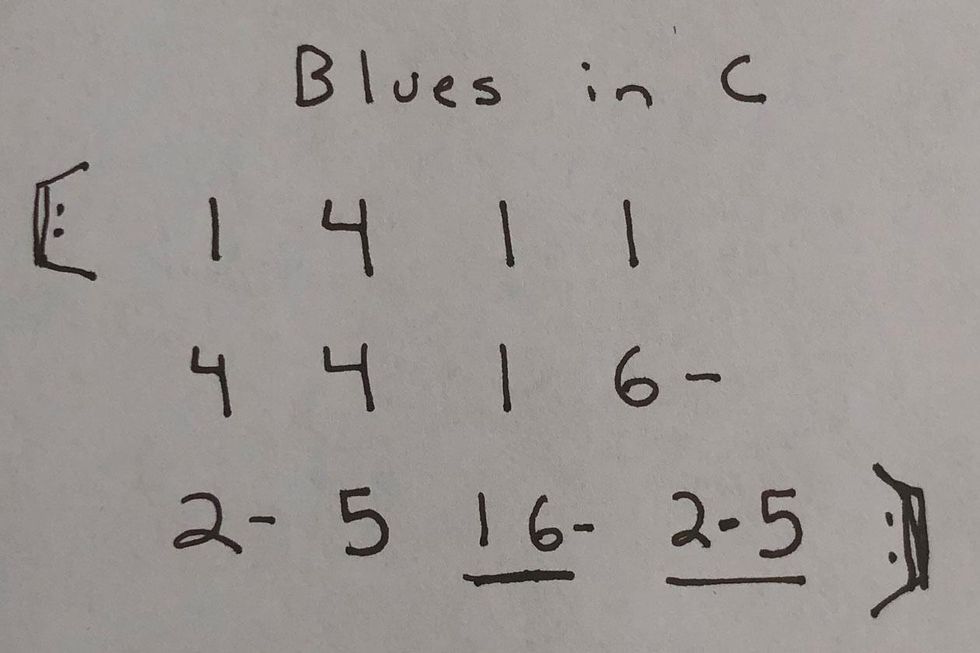 Blues in C
[: 1 4 1 1
4 4 1 6-
2- 5 1 6- 2-5 :]